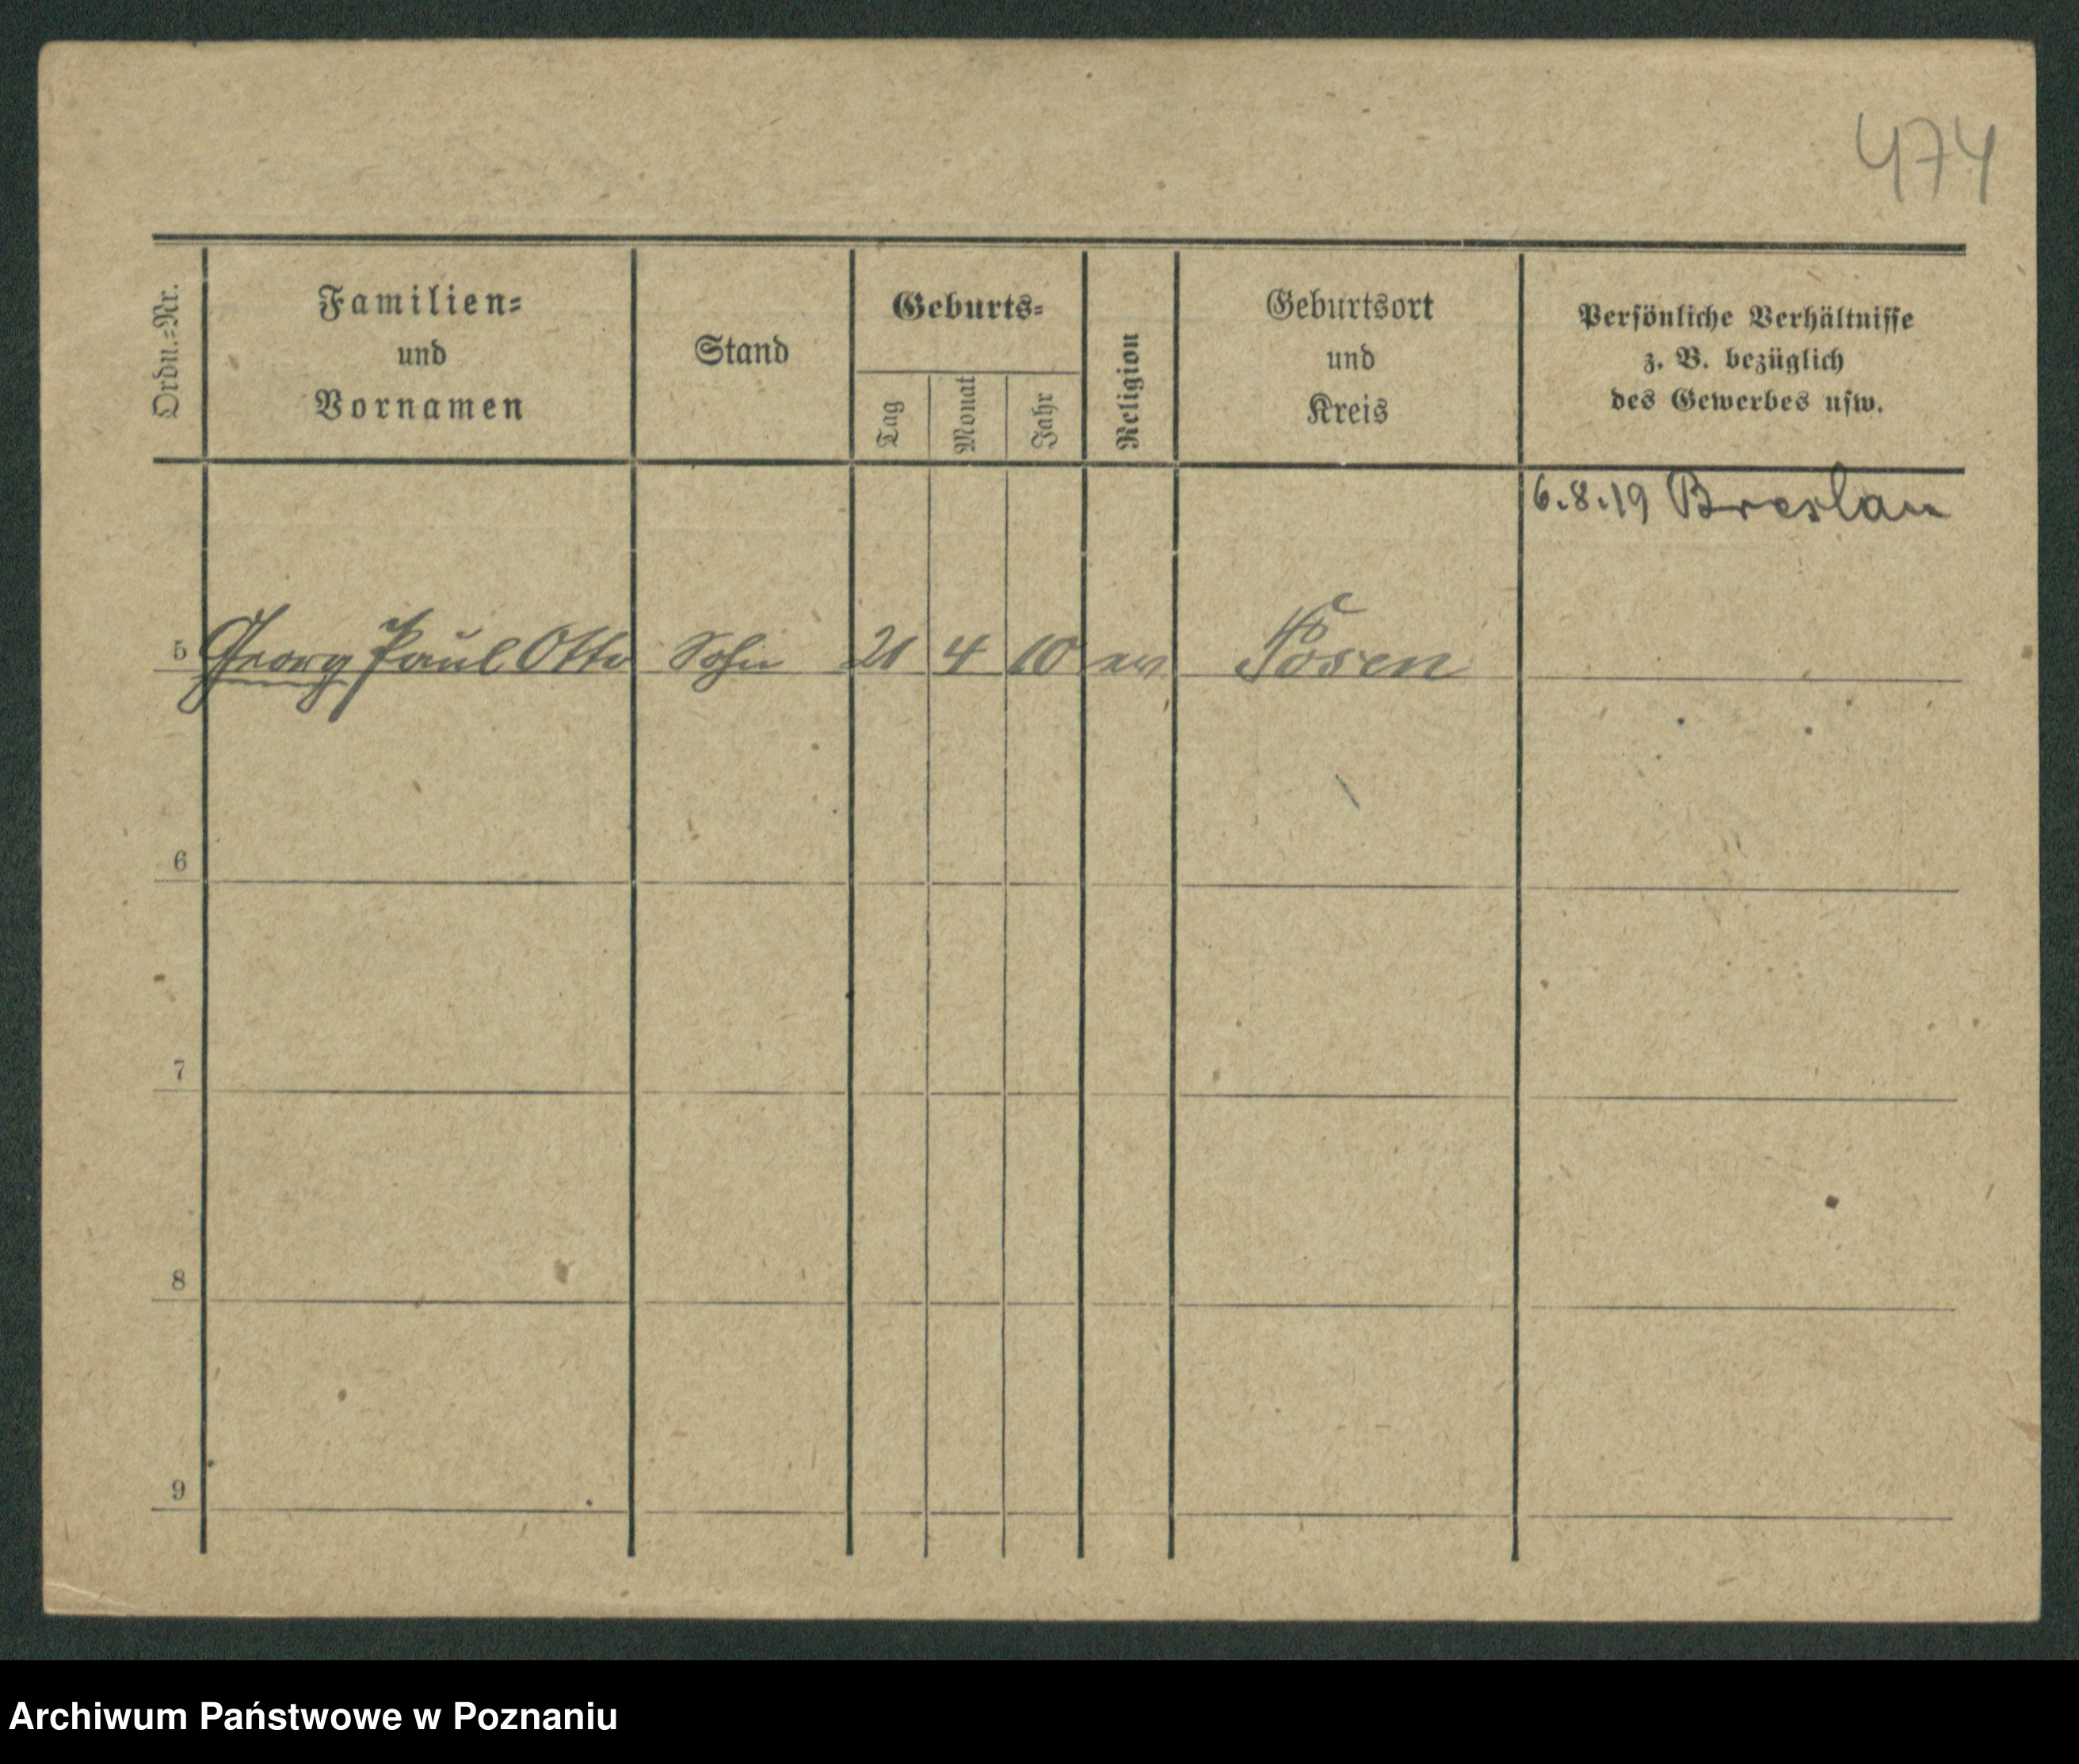 474
Ordn.-Nr.
Familien-
und
Vornamen
Stand
Geburts-
Tag
Monat
Jahr
Religion
Geburtsort
und
Kreis
Persönliche Verhältnisse
z. B. bezüglich
des Gewerbes usw.
6.8.19 Breslau
5 Georg Paul Otto Sohn 21 4 10 ev Posen
6
7
8
9
Archiwum Państwowe w Poznaniu